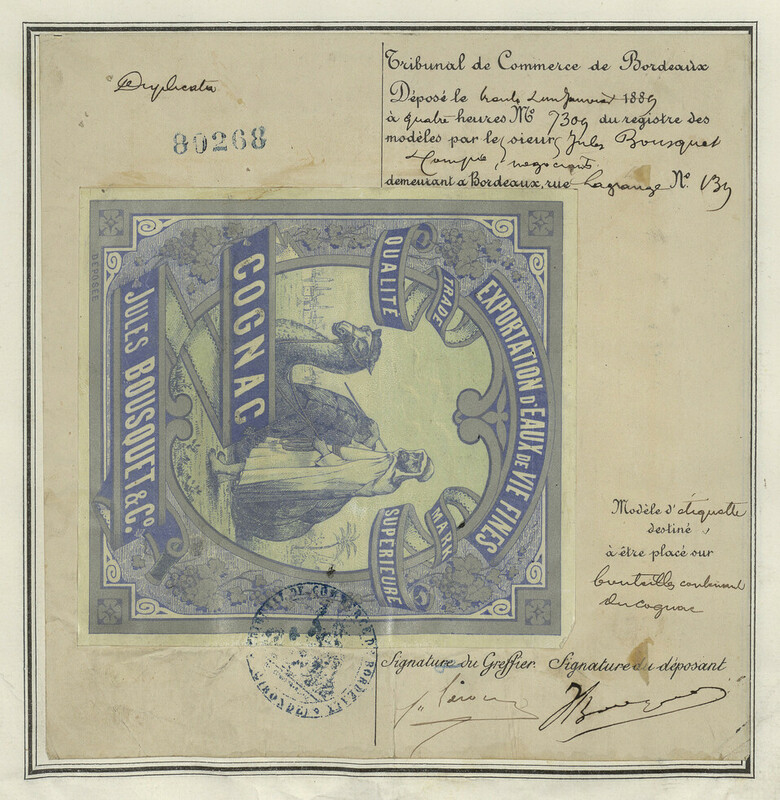 Duplicata
80268
Tribunal de Commerce de Bordeaux
Déposé le trente un Janvier 1889
à quatre heures No 7309 du registre des
modèles par le sieur Jules Bousquet
& Compie, négociants
demeurant à Bordeaux, rue Lagrange No 139
DÉPOSÉE
EXPORTATION D'EAUX DE VIE FINES
TRADE MARK
QUALITÉ SUPÉRIEURE
COGNAC
JULES BOUSQUET & Co.
Modèle d'étiquette
destiné
à être placé sur
bouteilles contenant
du cognac
TRIBUNAL DE COMMERCE DE BORDEAUX
Signature du Greffier. Signature du déposant